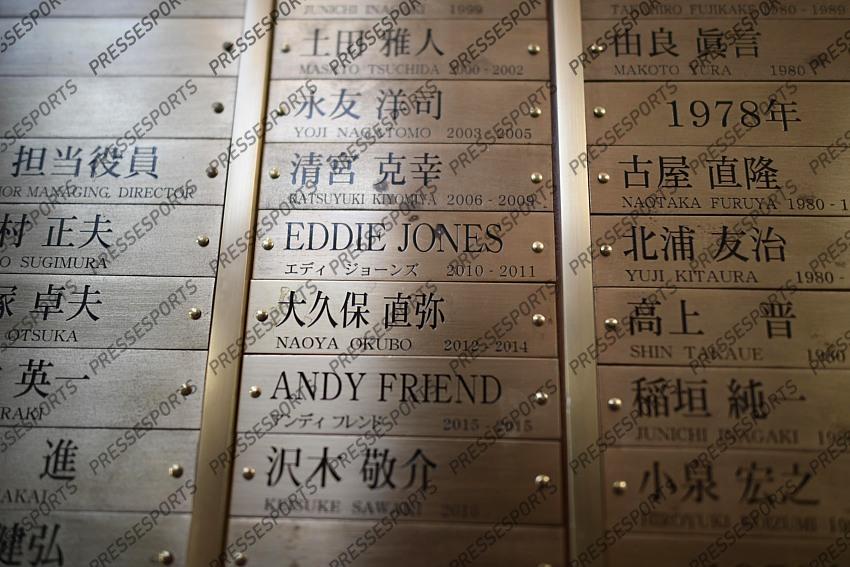 担当役員
IOR MANAGING DIRECTOR
村 正夫
O SUGIMURA
塚 卓夫
OTSUKA
英一
RAKI
進
AKAI
健弘
JUNICHI INAGAKI 1999
土田 雅人
MASATO TSUCHIDA 2000 - 2002
永友 洋司
YOJI NAGATOMO 2003 - 2005
清宮 克幸
KATSUYUKI KIYOMIYA 2006 - 2009
EDDIE JONES
エディ ジョーンズ 2010 - 2011
大久保 直弥
NAOYA OKUBO 2012 - 2014
ANDY FRIEND
アンディ フレンド 2015 - 2015
沢木 敬介
KEISUKE SAWAKI 2016
TAKAHIRO FUJIKAKE 1980 - 1989
由良 眞言
MAKOTO YURA 1980
1978年
古屋 直隆
NAOTAKA FURUYA 1980 - 1
北浦 友治
YUJI KITAURA 1980 -
高上 晋
SHIN TAKAUE 1980
稲垣 純一
JUNICHI INAGAKI 198
小泉 宏之
HIROYUKI KOIZUMI 1
PRESSESPORTS